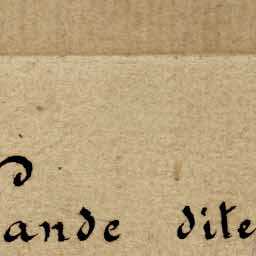 ande dite